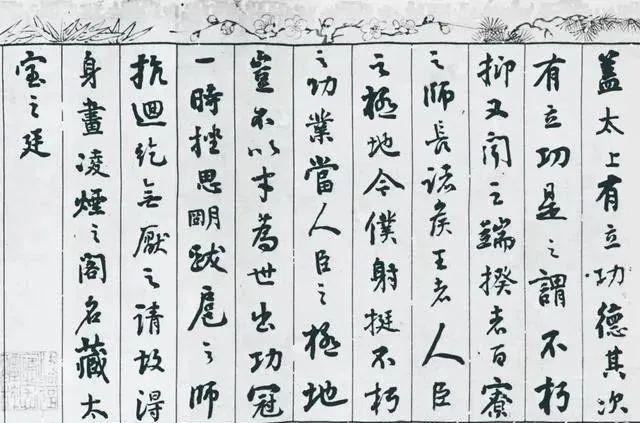 蓋太上有立功德其次
有立功是之謂不朽
抑又聞之端揆者百寮
之師長諸侯王者人臣
之極地今僕射挺不朽
之功業當人臣之極地
豈不以才為世出功冠
一時挫思明跋扈之師
抗迴紇無厭之請故得
身畫凌煙之閣名藏太
室之廷